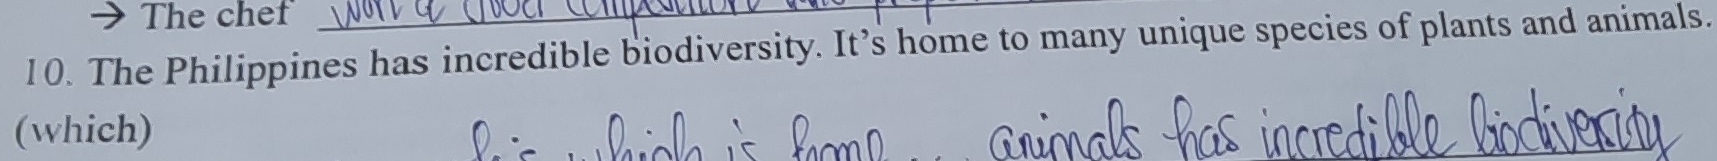 → The chef won a
10. The Philippines has incredible biodiversity. It's home to many unique species of plants and animals.
(which)
which is home ... animals has incredible biodiversity